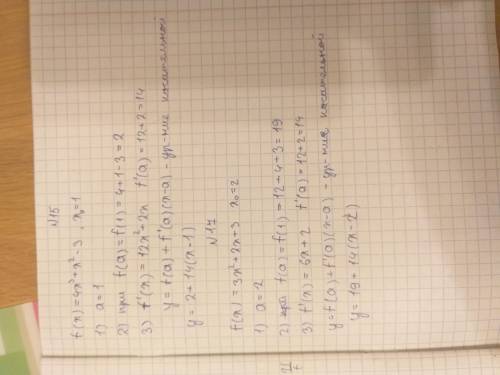 N15
f(x)=4x³+x²-3 , x₀=1
1) a=1
2) при f(a)=f(1)=4+1-3=2
3) f'(x)=12x²+2x f'(a)=12+2=14
y=f(a)+f'(a)(x-a) - ур-ние касательной
y=2+14(x-1)
N17
f(x)=3x²+2x+3 x₀=2
1) a=2
2) f(a)=f(1)=12+4+3=19
3) f'(x)=6x+2 f'(a)=12+2=14
y=f(a)+f'(a)(x-a) - ур-ние касательной
y=19+14(x-2)